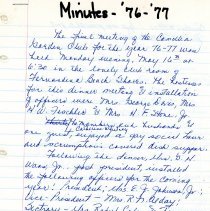 Minutes - '76 - '77
The final meeting of the Camellia
Garden Club for the year 76-77 was
held Monday evening, May 16th at
6:30 in the lovely club room of
Fernandina Beach Shores. The hostesses
for this dinner meeting & installation
of officers were Mrs. George Davis, Mrs.
H. W. Fischler & Mrs. H. F. Horne, Jr.
members, husbands &
guests enjoyed a gay social hour
and scrumptious covered dish supper.
Following the dinner, Mrs. D. H.
Wann, Jr., past president, installed
the following officers for the coming
year: President, Mrs. E. J. Johnson, Jr.;
Vice-President - Mrs. R. F.